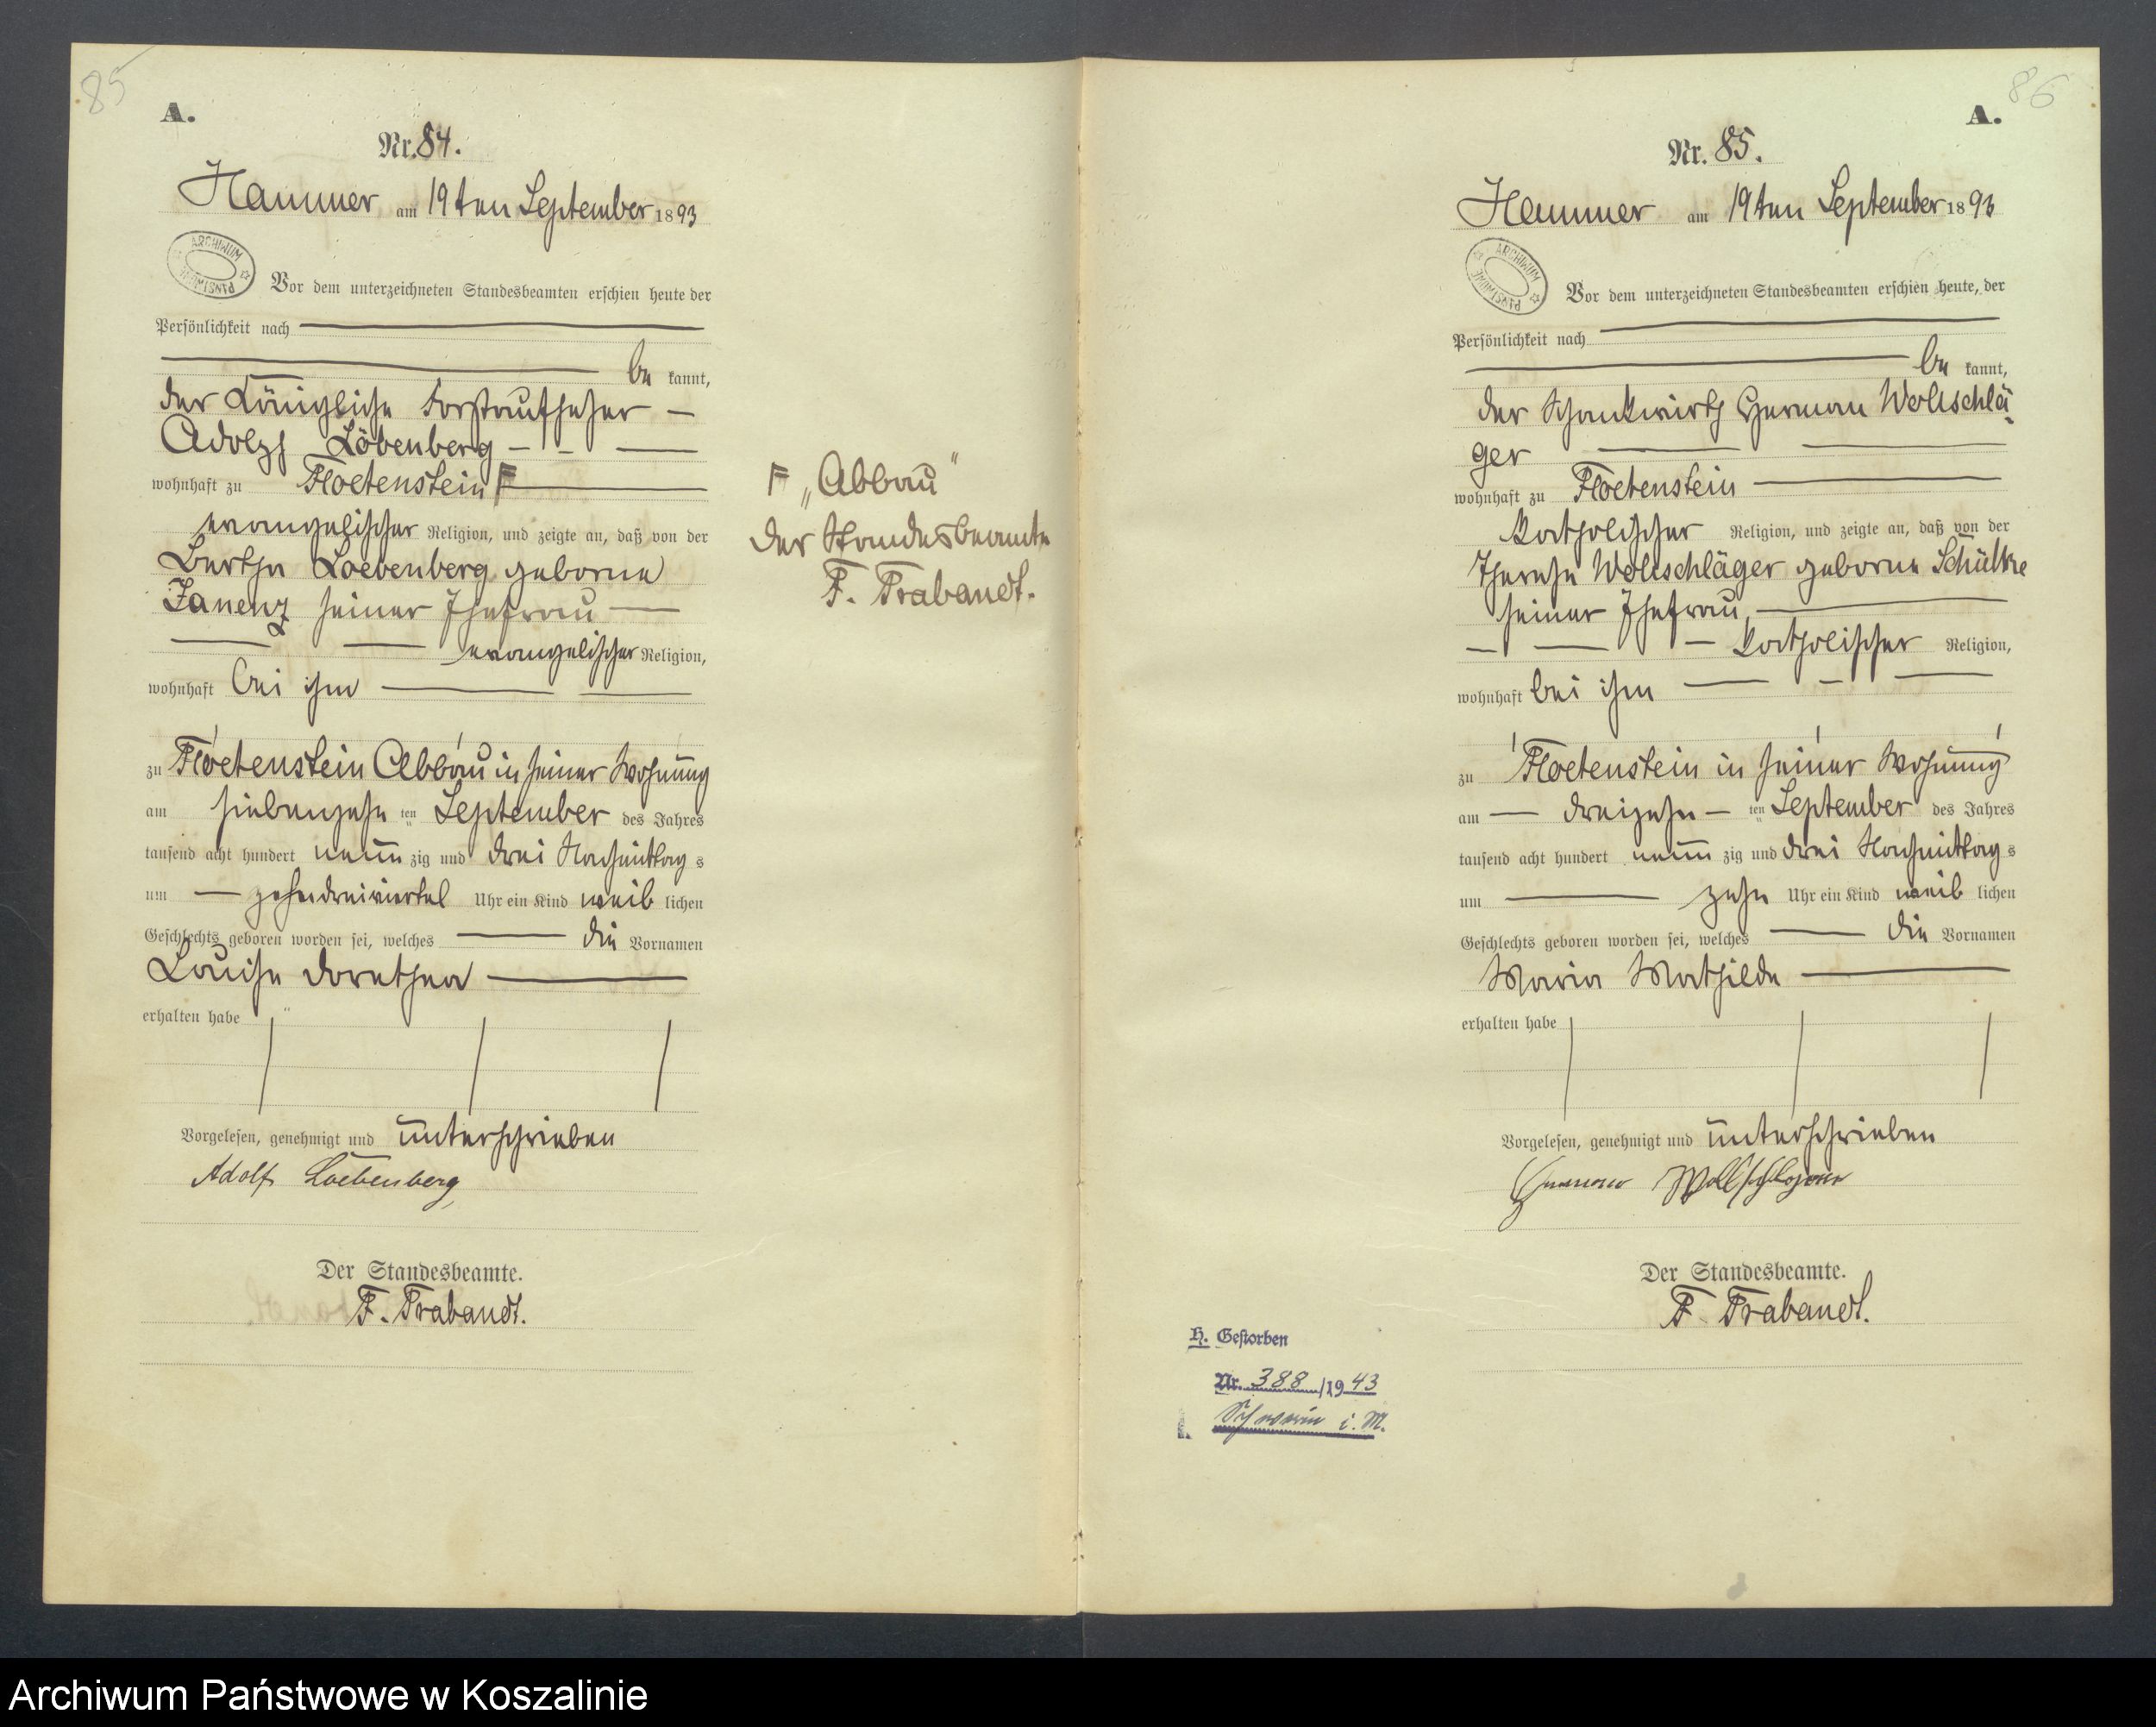 85
A.
Nr. 84.
Hammer am 19ten September 1893
ARCHIWUM PAŃSTWOWE
Vor dem unterzeichneten Standesbeamten erschien heute der
Persönlichkeit nach
be kannt,
der Königliche Forstaufseher
Adolph Löbenberg
wohnhaft zu Floetenstein F
evangelischer Religion, und zeigte an, daß von der
Bertha Loebenberg geborne
Janenz seiner Ehefrau
evangelischer Religion,
wohnhaft bei ihm
zu Floetenstein Abbau in seiner Wohnung
am siebenzehn ten September des Jahres
tausend acht hundert neun zig und drei Nachmittag s
um zehndreiviertel Uhr ein Kind weib lichen
Geschlechts geboren worden sei, welches die Vornamen
Louise Dorothea
erhalten habe
Vorgelesen, genehmigt und unterschrieben
Adolf Loebenberg
Der Standesbeamte.
F. Trabandt.
F „Abbau"
Der Standesbeamte
F. Trabandt.
86
A.
Nr. 85.
Hammer am 19ten September 1893
ARCHIWUM PAŃSTWOWE
Vor dem unterzeichneten Standesbeamten erschien heute, der
Persönlichkeit nach
be kannt,
der Schankwirth Herman Wollschlä-
ger
wohnhaft zu Floetenstein
katholischer Religion, und zeigte an, daß von der
Therese Wollschläger geborne Schülke
seiner Ehefrau,
katholischer Religion,
wohnhaft bei ihm
zu Floetenstein in seiner Wohnung
am dreizehn ten September des Jahres
tausend acht hundert neun zig und drei Nachmittag s
um zehn Uhr ein Kind weib lichen
Geschlechts geboren worden sei, welches die Vornamen
Maria Mathilde
erhalten habe
Vorgelesen, genehmigt und unterschrieben
Herman Wollschlaeger
Der Standesbeamte.
F Trabandt.
H. Gestorben
Nr. 388/1943
Schwerin i. M.
Archiwum Państwowe w Koszalinie